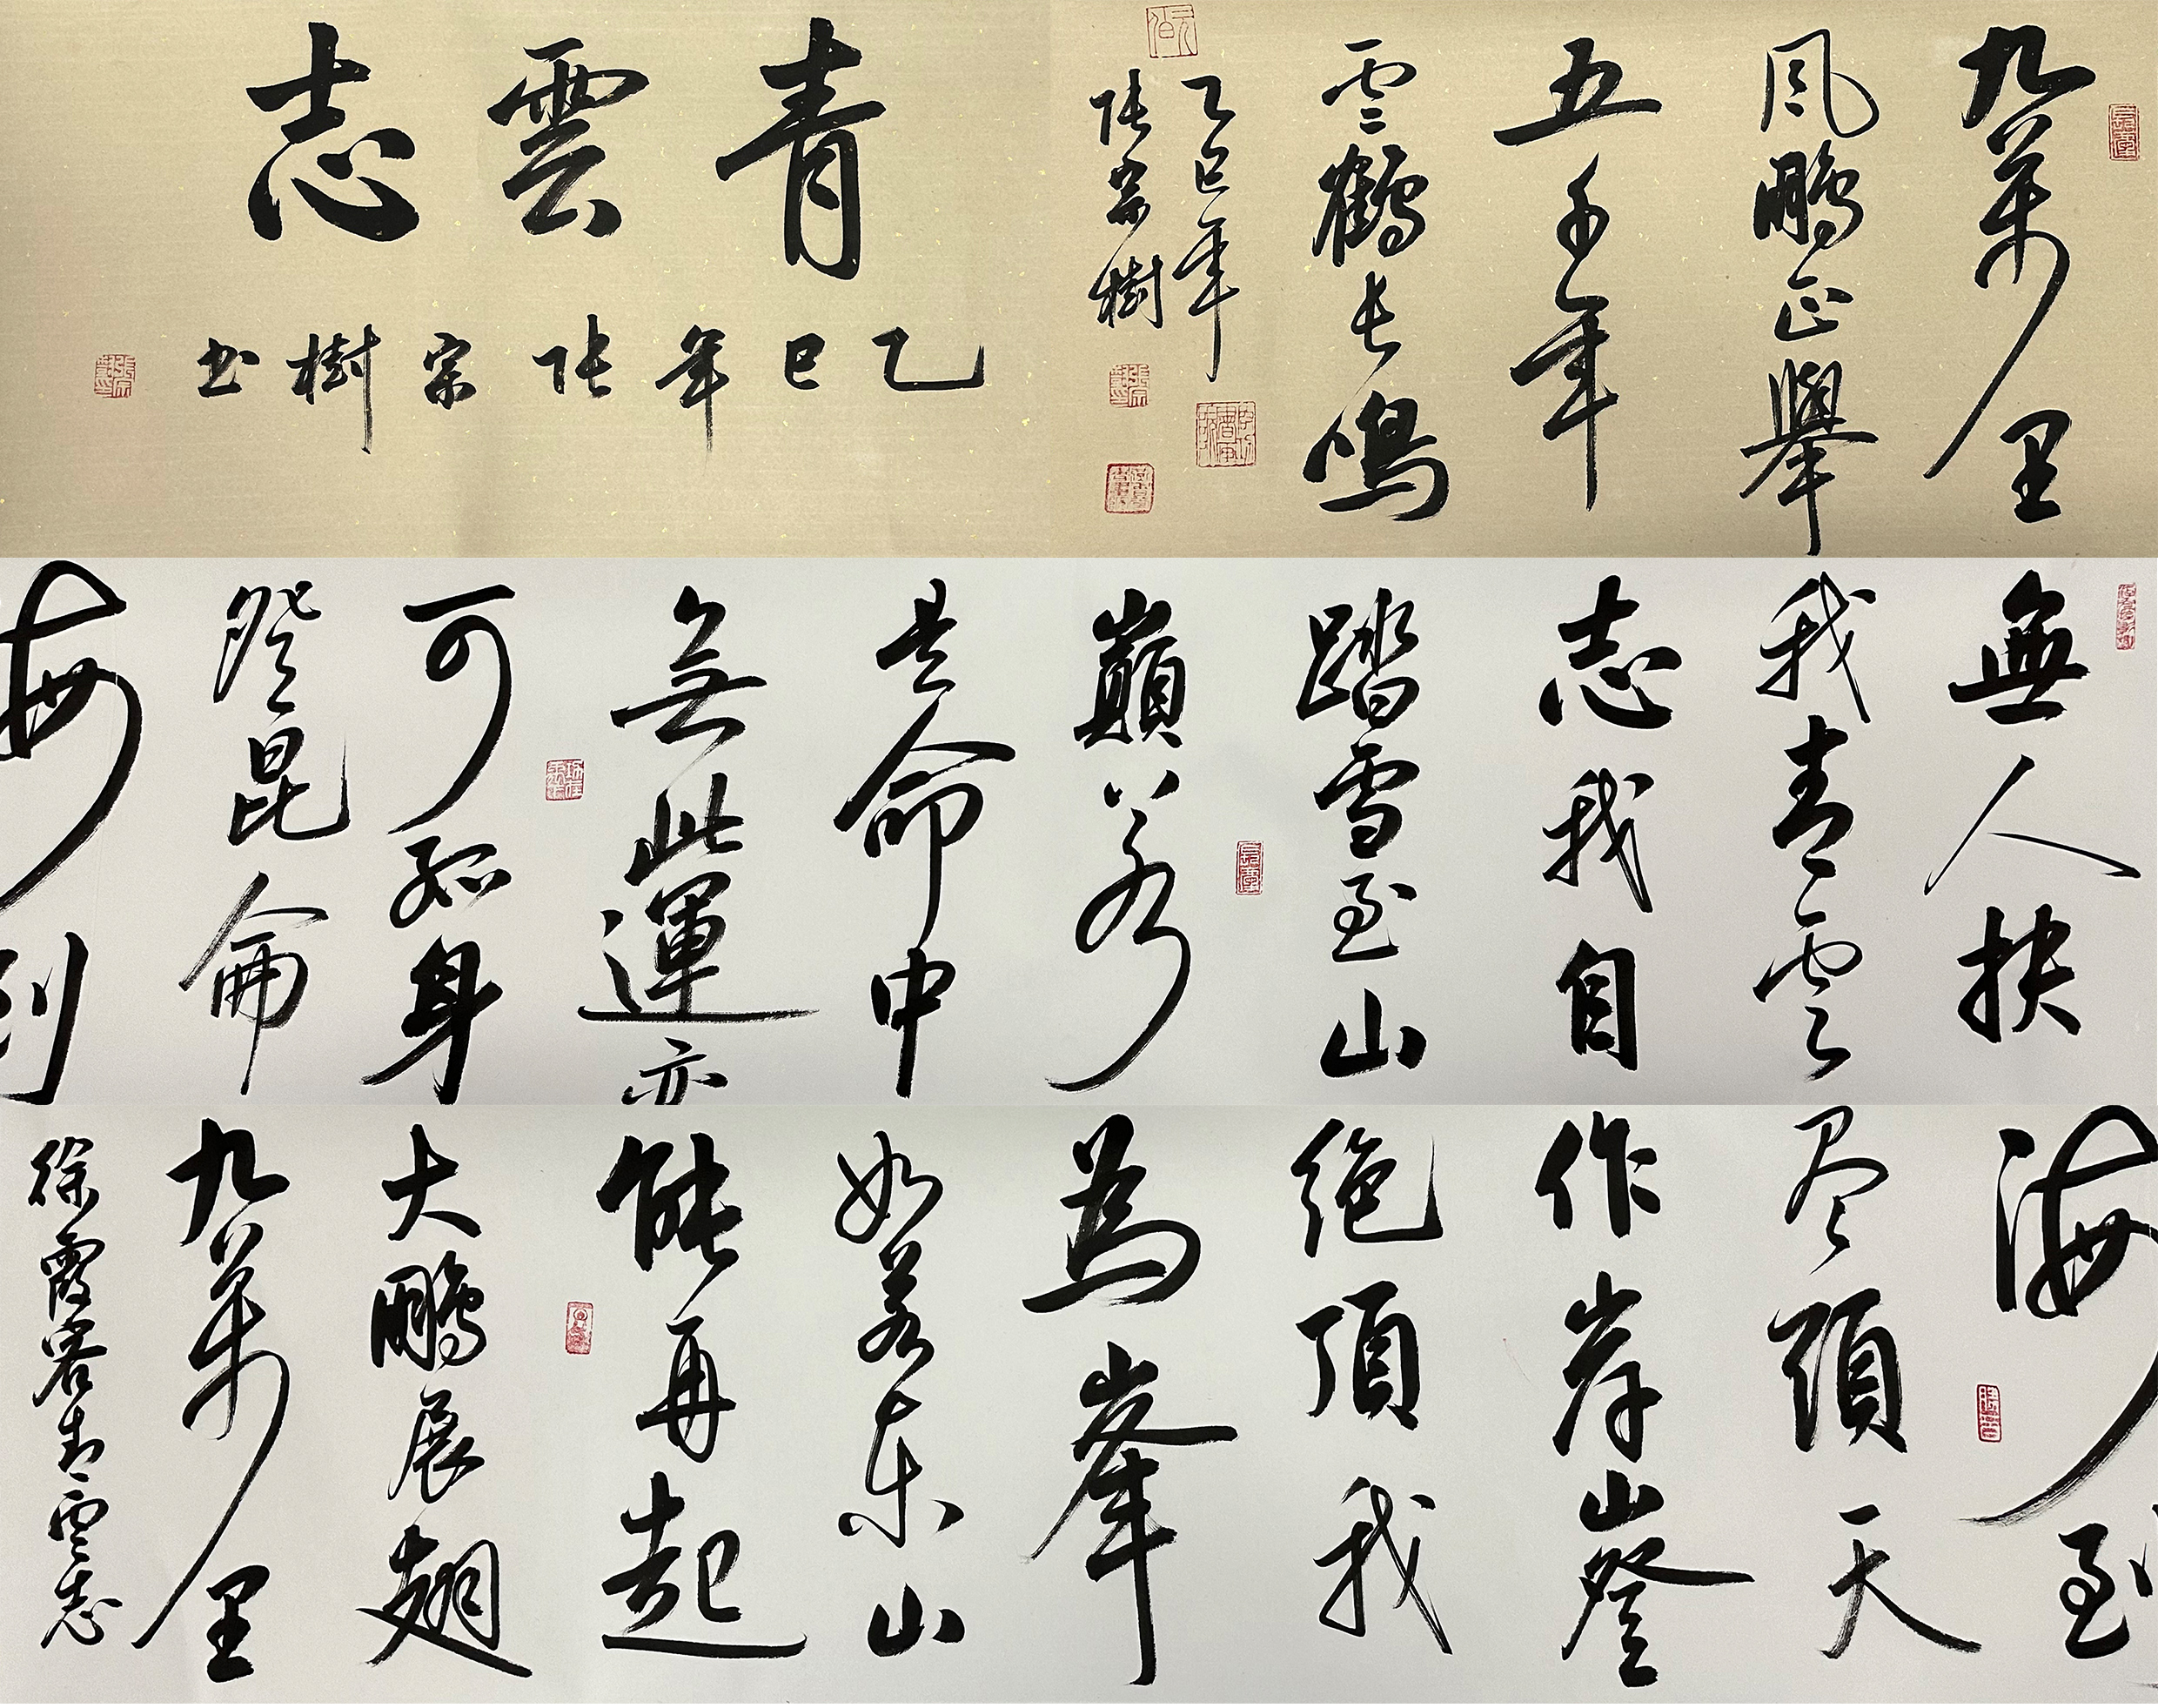 九萬里
風鵬正舉
五千年
雲鶴長鳴
乙巳年
張宗樹
青雲志
乙巳年張宗樹書
無人扶
我青雲
志我自
踏雪至山
巔若
是命中
無此運亦
可孤身
登昆侖
海到
海至
尽頭天
作岸山登
絕頂我
為峯
如若東山
能再起
大鵬展翅
九萬里
徐霞客青雲志